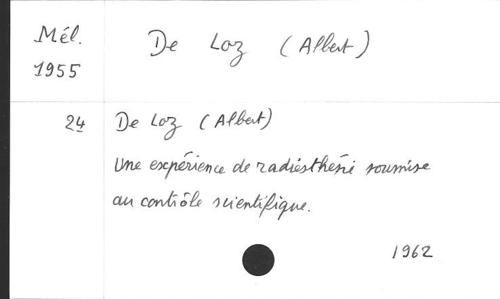 Mél.
1955
De Loz (Albert)
24
De Loz (Albert)
Une expérience de radiésthésie soumise
au contrôle scientifique.
1962